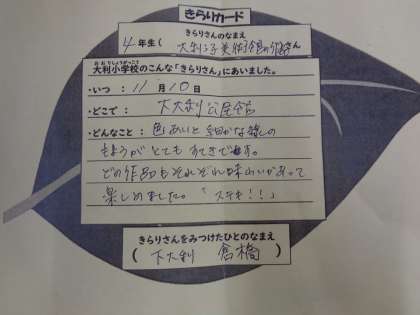 きらりカード
きらりさんのなまえ
4年生(大利子美術館の皆さん
おおりしょうがっこう
大利小学校のこんな「きらりさん」にあいました。
・いつ : 11月10日
・どこで : 下大利公民館
・どんなこと : 色あいと細かな線の
もようがとてもすてきです。
どの作品もそれぞれ味わいがあって
楽しめました。「ステキ!!」
きらりさんをみつけたひとのなまえ
(下大利 倉橋)